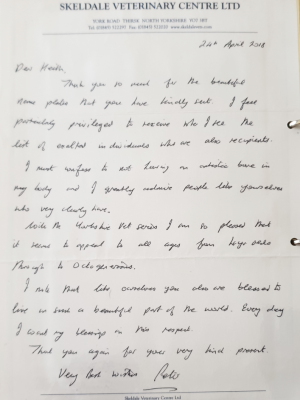 SKELDALE VETERINARY CENTRE LTD
YORK ROAD THIRSK NORTH YORKSHIRE
24th April 2018
Dear
Thank you so much for the beautiful
name plates that you have kindly sent. I feel
profoundly privileged to receive when I see the
list of exalted individuals who are also recipients.
I must confess to not having an artistic bone in
my body and I greatly admire people like yourselves
who very clearly have.
With the Yorkshire Vet series I am so pleased that
it seems to appeal to all ages from
through to Octogenarians.
I note that like ourselves you also are blessed to
live in such a beautiful part of the world. Every day
I count my blessings in this respect.
Thank you again for your very kind present.
Very Best Wishes Peter
Skeldale Veterinary Centre Ltd